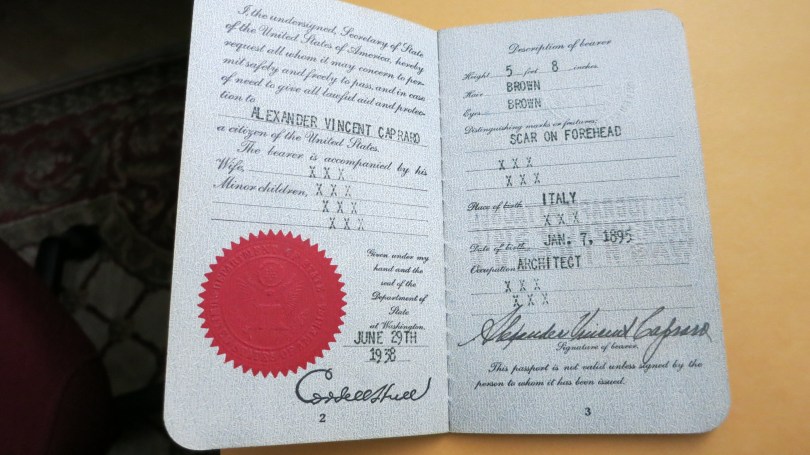 I, the undersigned, Secretary of State
of the United States of America, hereby
request all whom it may concern to per-
mit safely and freely to pass, and in case
of need to give all lawful aid and protec-
tion to
ALEXANDER VINCENT CAPRARO
a citizen of the United States.
The bearer is accompanied by his
Wife, X X X
Minor children, X X X
X X X
X X X
Given under my
hand and the
seal of the
Department of
State
at Washington,
JUNE 29TH
1938
Cordell Hull
2
Description of bearer
Height 5 feet 8 inches.
Hair BROWN
Eyes BROWN
Distinguishing marks or features:
SCAR ON FOREHEAD
X X X
X X X
Place of birth ITALY
X X X
Date of birth JAN. 7, 1895
Occupation ARCHITECT
X X X
X X X
Alexander Vincent Capraro
Signature of bearer.
This passport is not valid unless signed by the
person to whom it has been issued.
3